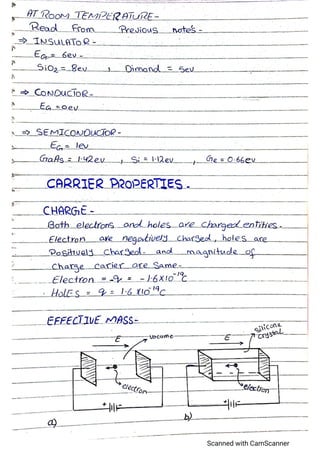 AT ROOM TEMPERATURE-
Read From Previous notes-
⇒ INSULATOR -
EG = 6ev -
SiO2 = 8ev , Dimond = 5ev
⇒ CONDUCTOR-
EG ≈ 0ev
⇒ SEMICONDUCTOR-
EG = 1ev
GaAs = 1.42ev , Si = 1.12ev , Ge = 0.66ev
CARRIER PROPERTIES.
CHARGE -
Both electrons and holes are charged entities.
Electron are negatively charged, holes are
Positively Charged. and magnitude of
Charge carier are Same-
Electron = -q = -1.6×10⁻¹⁹C
HolES = q = 1.6×10⁻¹⁹C
EFFECTIVE MASS-
E vacume E silicone crystal
electron electron
+ - + -
a) b)
Scanned with CamScanner